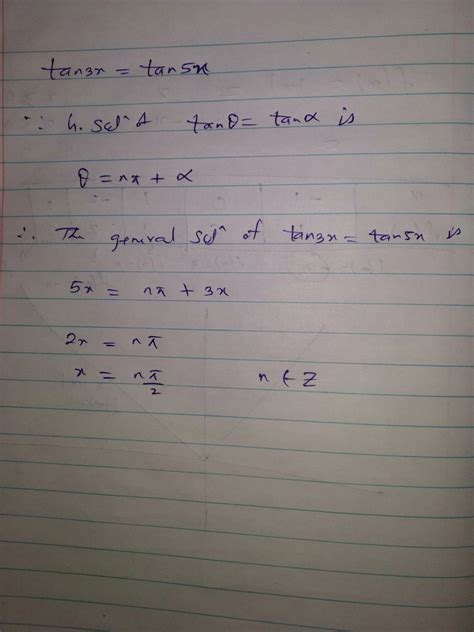 tan3x = tan5x
∵ G. Solⁿ of tanθ = tanα is
θ = nπ + α
∴ The general Solⁿ of tan3x = tan5x is
5x = nπ + 3x
2x = nπ
x = nπ/2 n ∈ Z